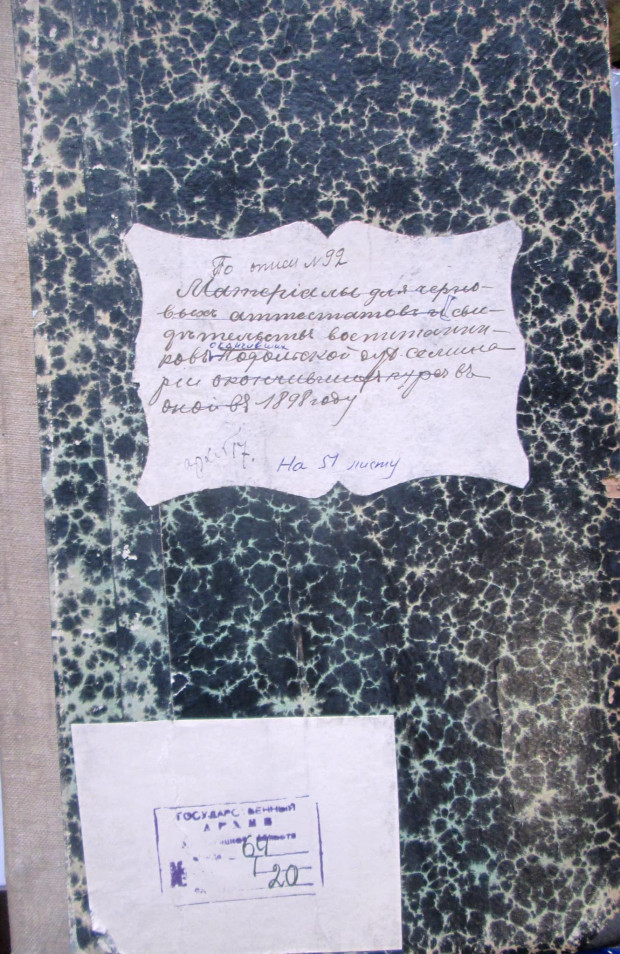 По описи №92
Матеріалы для черно-
выхъ аттестатовъ и сви-
дѣтельствъ воспитанни-
окончивших
ковъ Подольской дух. семина
ріи окончившихъ курсъ въ
оной въ 1898 году
На 51 листу
ГОСУДАРСТВЕННЫЙ
АРХИВ
области
69
1
№ 20